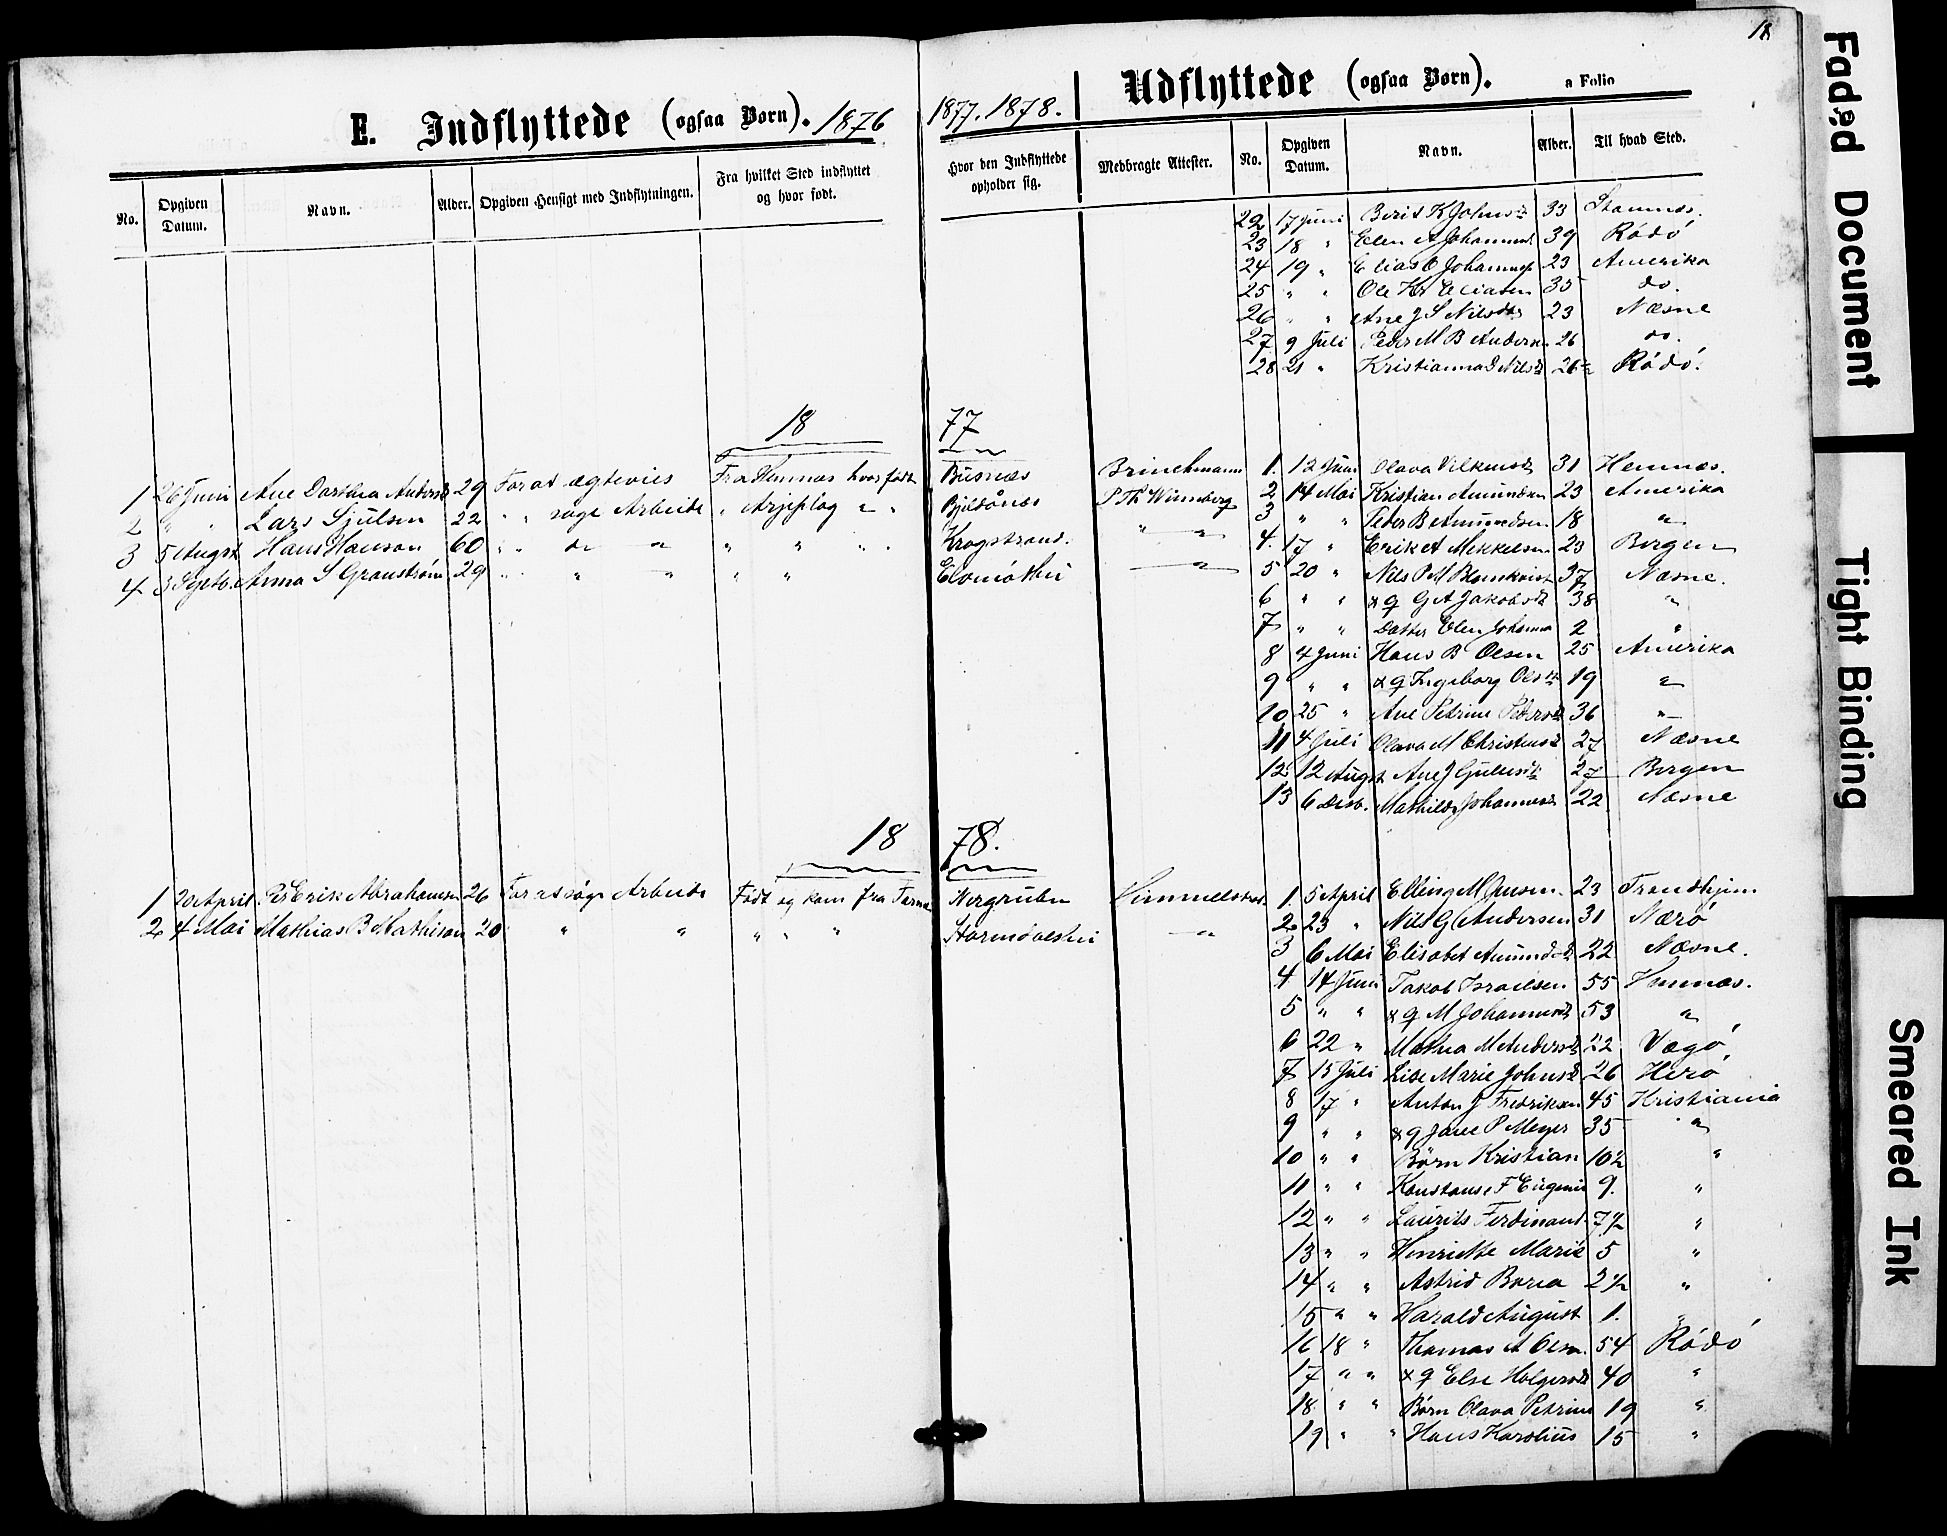 18
E. Indflyttede (ogsaa Børn). 1876
No. Opgiven Datum. Navn. Alder. Opgiven Hensigt med Indflytningen. Fra hvilket Sted indflyttet og hvor født.
18
1 26 Juni Ane Dorthea Andersd 29 For at ægtevies Fra Hemnæs hvor født
2 " " Lars Sjulsen 22 " " søge Arbeide " Arjeplog " "
3 5 August Hans Hanson 60 " " " " " "
4 3 Septb. Anna S Granström 29 " " " " "
18
1 20 April Per Erik Abrahamsen 26 For at søge Arbeide Født og kom fra Tärna
2 4 Mai Mathias B Mathison 20 " " " " "
1877. 1878.
Udflyttede (ogsaa Børn). a Folio
Hvor den Indflyttede opholder sig. Medbragte Attester. No. Opgiven Datum. Navn. Alder. Til hvad Sted.
22 17 Juni Berit K Johnsd 33 Stamnæs.
23 18 " Elen A Johannesd 39 Rödö
24 19 " Elias O Johannes 23 Amerika
25 " " Ole Hr Eliasen 35 do.
26 " " Ane J S Nilsdtr 23 Næsne
27 9 Juli Peder M B Andersen 26 do.
28 21 " Kristianna J Nilsd 26 Rödö.
77
Busnæs Brinchmann 1. 12 Juni Olava Vilkensd 31 Hemnæs.
Bjeldånæs P Th Winnberg 2 14 Mai Kristian Amundsen 23 Amerika
Krogstrand. " " 3 " " Peder B Amundsen 18 "
4. 17 " Erik A Mikkelsen 23 Bergen
" 5 20 " Nils P M Blomkvist 37 Næsne.
6 " " & q G A Jakobsd 38 "
7 " " Datter Elen Johanna 2 "
8 4 Juni Hans B Olsen 25 Amerika
9 " " & q Ingeborg Olsd 19 "
10 25 " Ane Petrine Pedersd 36 "
11 4 Juli Olava M Christensd 27 Næsne
12 12 August Ane J Gullesd 27 Bergen
13 6 Desb. Mathilde Johannesd 22 Næsne
78.
Nergruben 1. 5 April Elling M Jensen 23 Trondhjem
" 2. 23 " Nils G Andersen 31 Nærö
3 6 Mai Elisabet Amundsd 22 Næsne.
4 14 Juni Jakob Israelsen 55 Hemnæs.
5 " " & q M Johannesd 53 "
6 22 " Mathea M Andersd 22 Vægö
7 15 Juli Lise Marie Johnsd 26 Herö
8 17 " Anton J Fredriksen 45 Kristiania
9 " " & q Jane P Meyer 35 "
10 " " Börn Kristian 10½ "
11 " " Konstanse F Eugenie 9. "
12 " " Laurits Ferdinand 7½ "
13 " " Henriette Marie 5 "
14 " " Astrid Borea 2½ "
15 " " Harald August 1. "
16 18 " Thomas A Olsen 54 Rödö
17 " " & q Else Holgersd 40 "
18 " " Börn Olava Petrine 19 "
19 " " Hans Karolius 15 "
Faded Document
Tight Binding
Smeared Ink